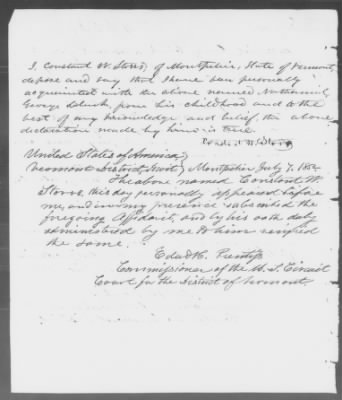 I, Constant W. Storrs of Montpelier, State of Vermont,
depose and say that I have been personally
acquainted with the above named Nathaniel
George from his childhood and to the
best of my knowledge and belief, the above
declaration made by him is true.
Storrs
United States of America,
Vermont District, Montpelier July 7, 
The above named Constant W.
Storrs, this day personally appeared before
me, and in my presence subscribed the
foregoing Affidavit, and by his oath duly
administered by me to him verified
the same.
Edw. H. Prentiss
Commissioner of the U. S. Circuit
Court for the District of Vermont.